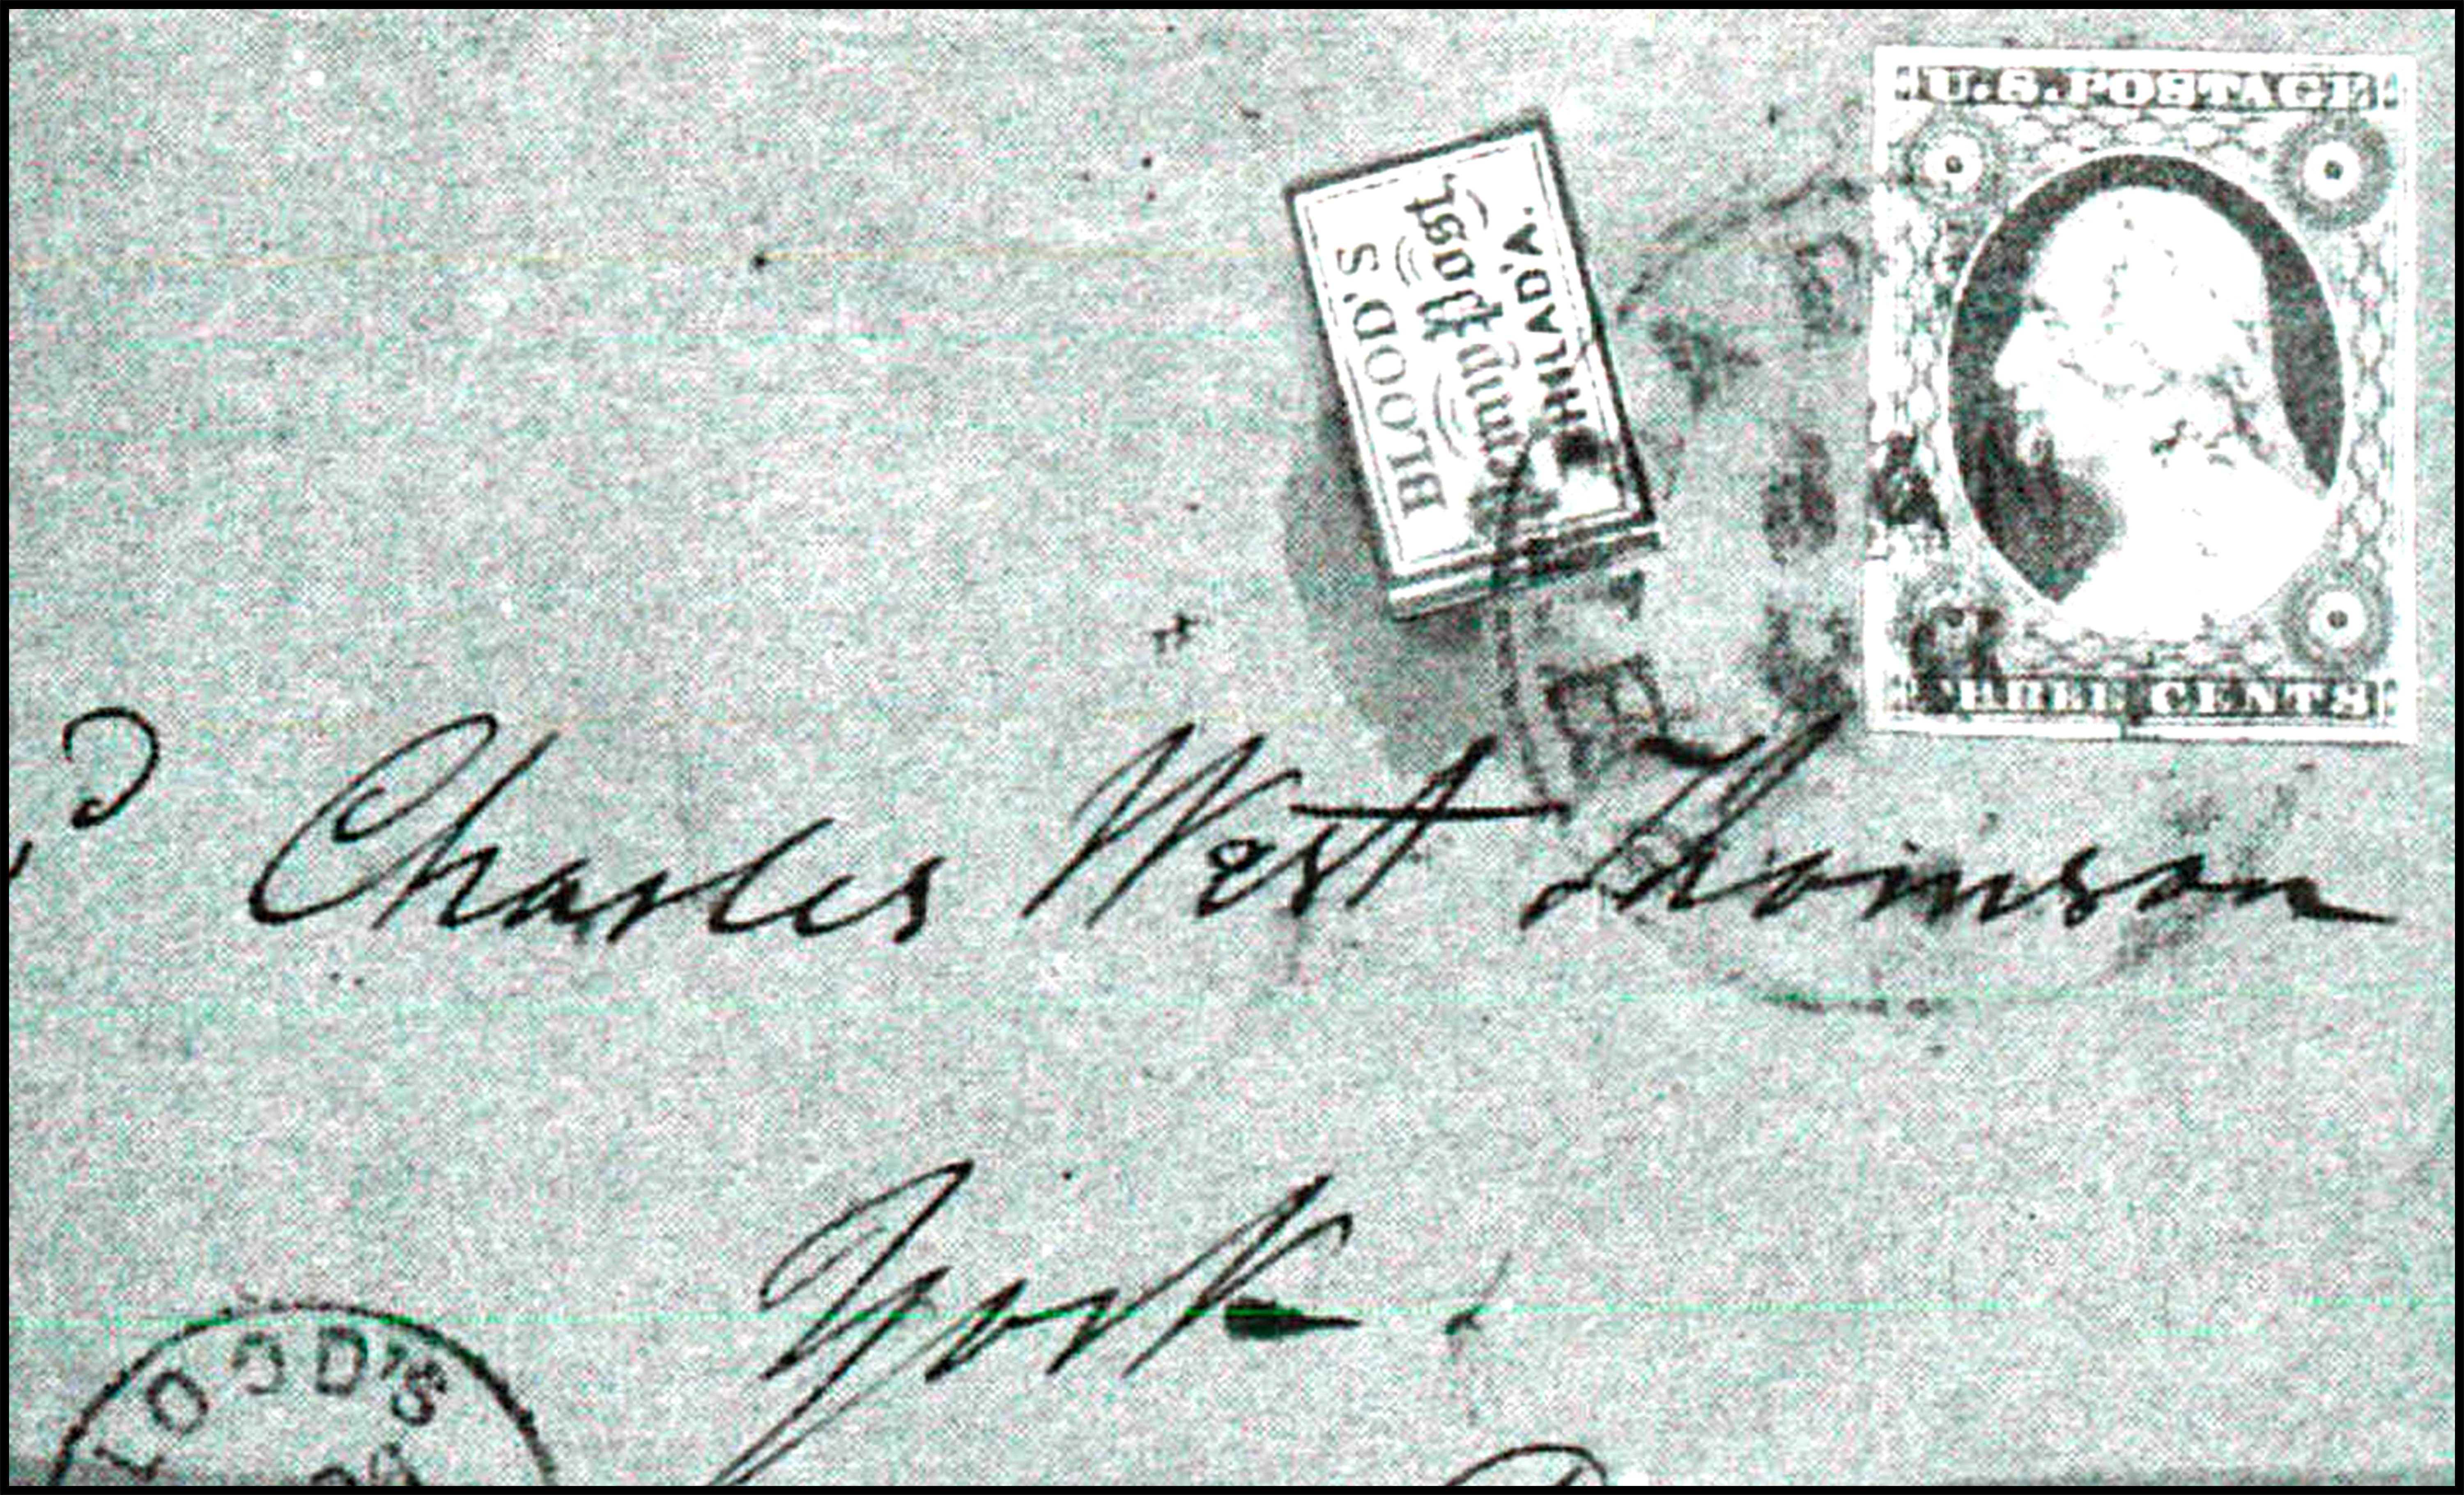 U.S. POSTAGE
BLOOD'S
Penny Post,
PHILAD'A.
THREE CENTS
Charles West Thomson
York
LOOD'S